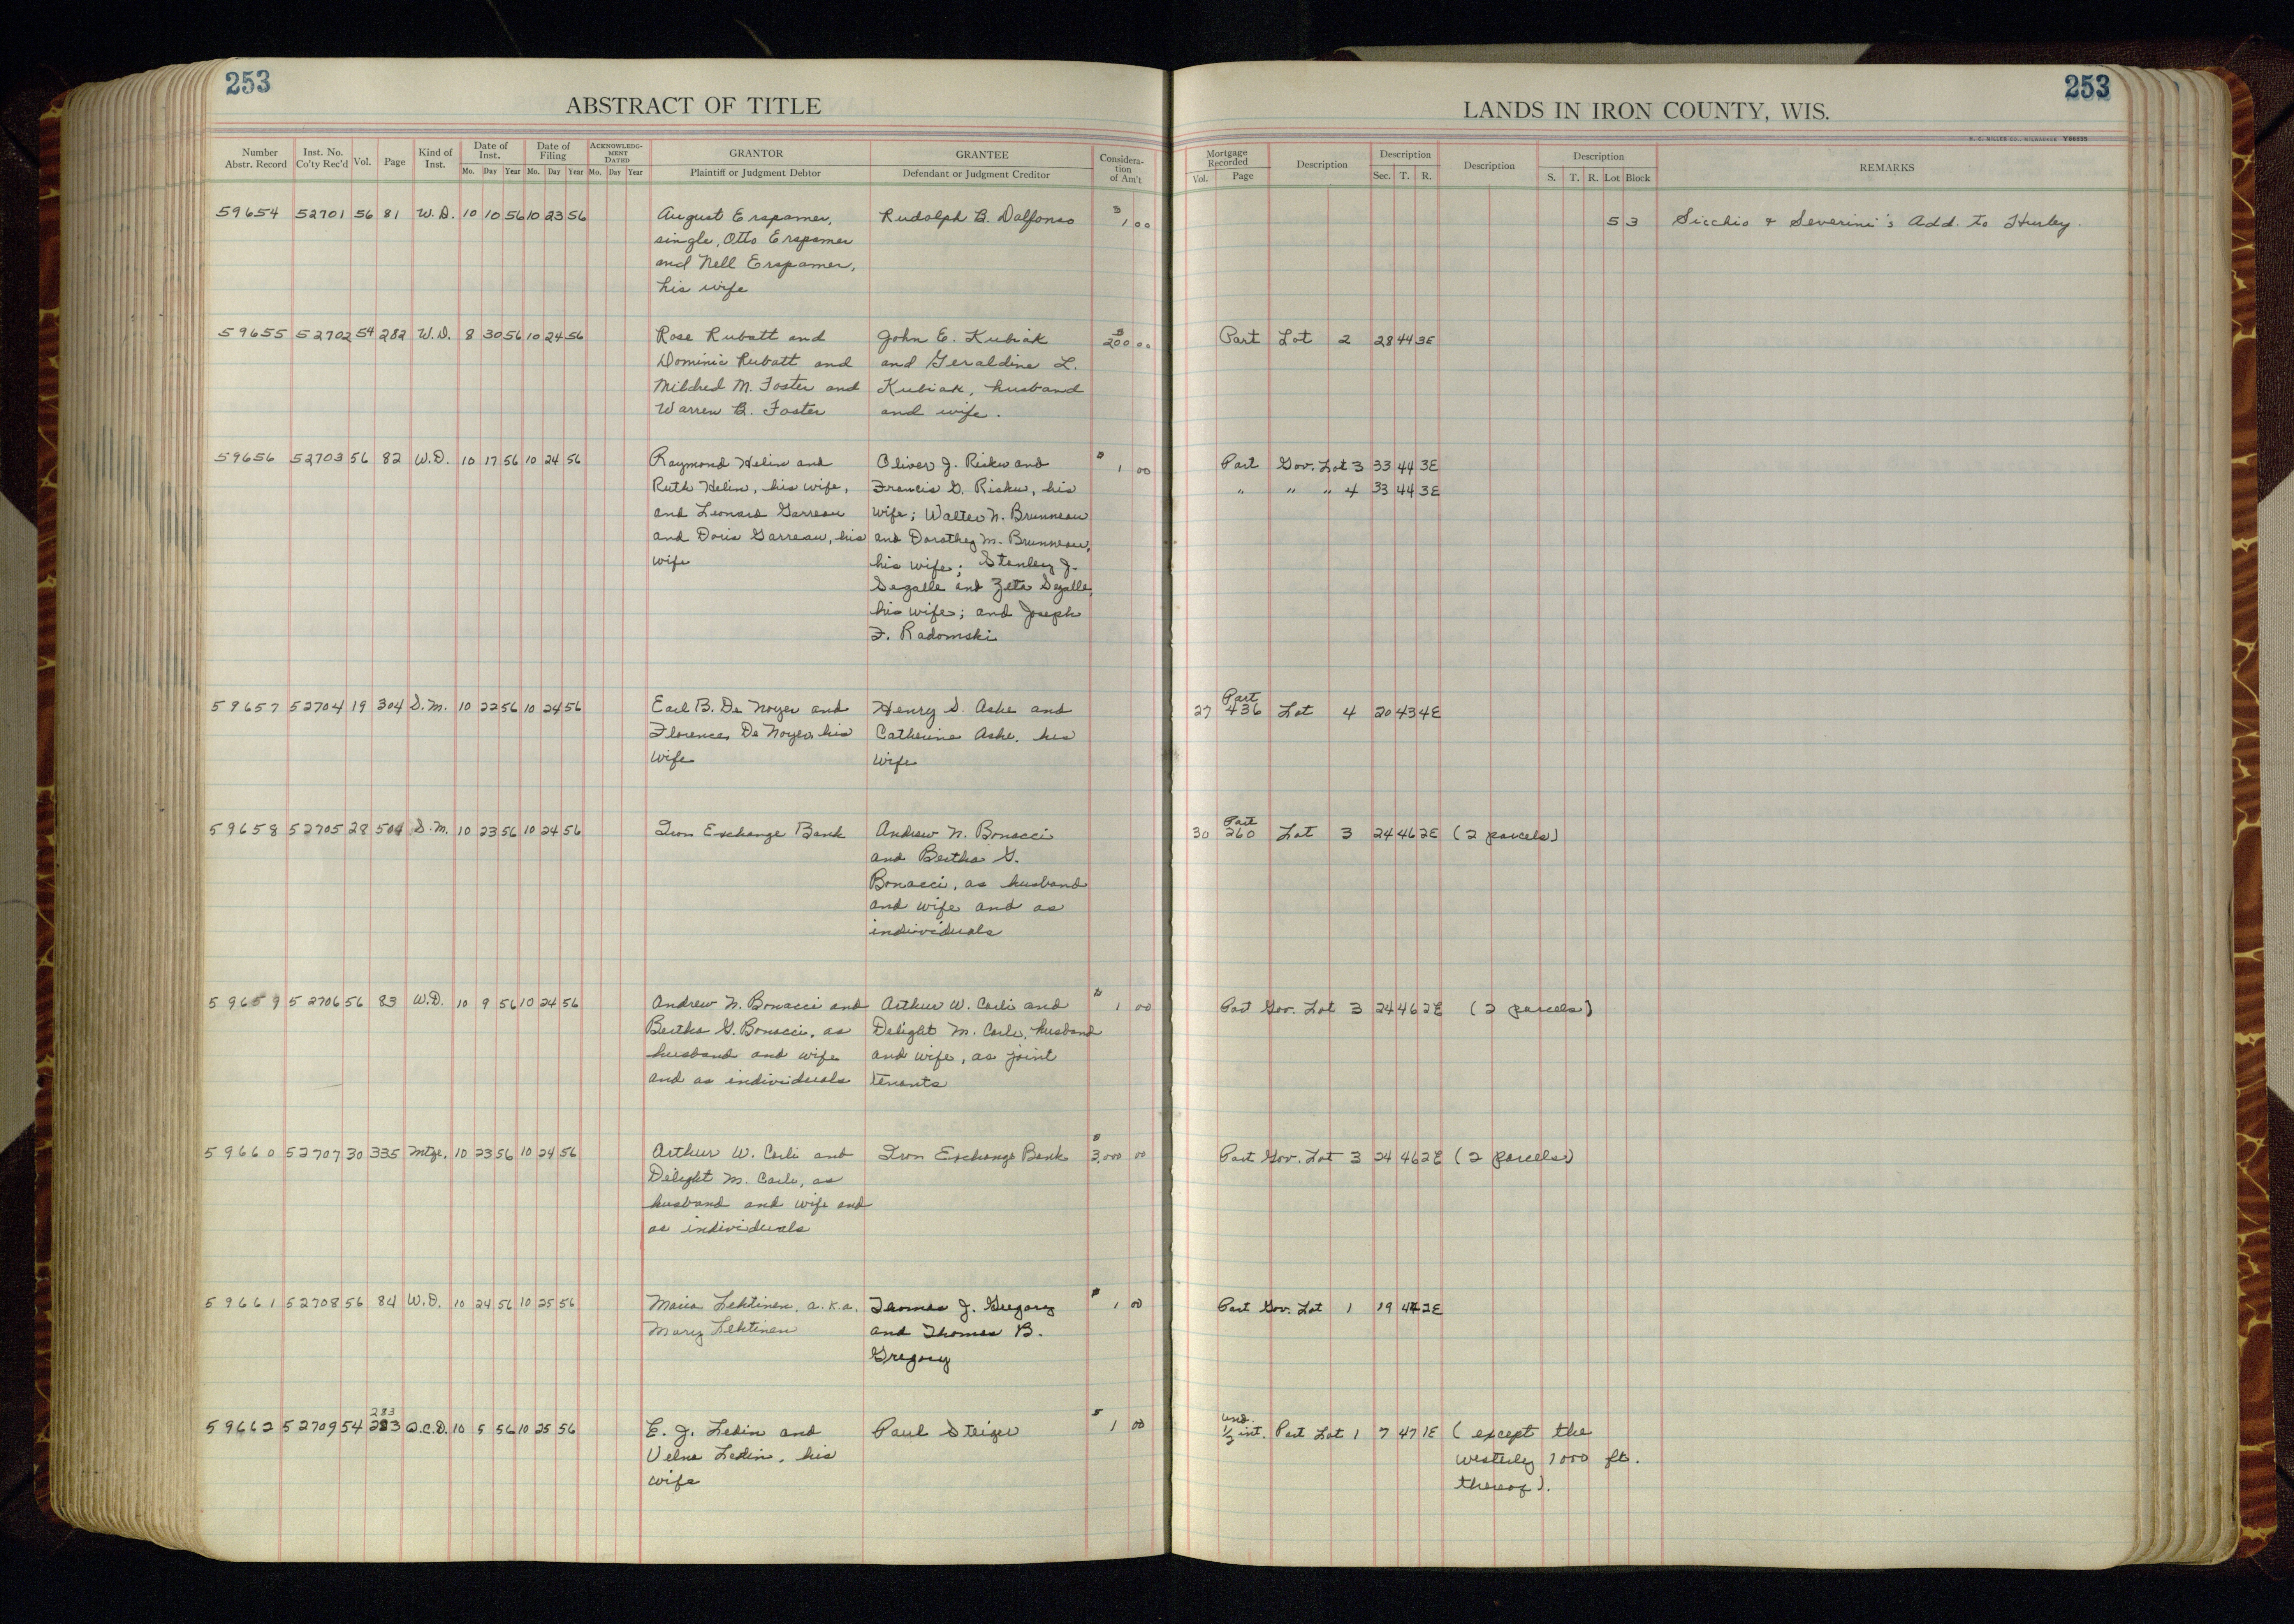 253
253
ABSTRACT OF TITLE
LANDS IN IRON COUNTY, WIS.
Number Abstr. Record Inst. No. Co'ty Rec'd Vol. Page Kind of Inst. Date of Inst. Date of Filing ACKNOWLEDGMENT DATED GRANTOR GRANTEE Consideration of Am't
Mo. Day Year Mo. Day Year Mo. Day Year Plaintiff or Judgment Debtor Defendant or Judgment Creditor
Mortgage Recorded Description Description Description Description REMARKS
Vol. Page Sec. T. R. S. T. R. Lot Block
59654 52701 56 81 W.D. 10 10 56 10 23 56 August Erspamer, Rudolph B. Dalfonso $ 1 00 5 3 Sicchio & Severini's Add. to Hurley.
single, Otto Erspamer
and Nell Erspamer,
his wife
59655 52702 54 282 W.D. 8 30 56 10 24 56 Rose Rubatt and John E. Kubiak $ 200 00 Part Lot 2 28 44 3E
Dominic Rubatt and and Geraldine L.
Mildred M. Foster and Kubiak, husband
Warren B. Foster and wife.
59656 52703 56 82 W.D. 10 17 56 10 24 56 Raymond Helin and Oliver J. Risku and $ 1 00 Part Gov. Lot 3 33 44 3E
Ruth Helin, his wife, Francis G. Risku, his " " " 4 33 44 3E
and Leonard Garreau wife; Walter N. Brunneau
and Doris Garreau, his and Dorothy M. Brunneau,
wife his wife; Stanley J.
Segalle and Zeta Segalle,
his wife; and Joseph
F. Radomski
59657 52704 19 304 S.M. 10 22 56 10 24 56 Earl B. De Noyer and Henry S. Ashe and 27 Part 436 Lot 4 20 43 4E
Florence De Noyer, his Catherine Ashe, his
wife wife
59658 52705 28 504 S.M. 10 23 56 10 24 56 Iron Exchange Bank Andrew N. Bonacci 30 Part 260 Lot 3 24 46 2E (2 parcels)
and Bertha G.
Bonacci, as husband
and wife and as
individuals
59659 52706 56 83 W.D. 10 9 56 10 24 56 Andrew N. Bonacci and Arthur W. Carli and $ 1 00 Part Gov. Lot 3 24 46 2E (2 parcels)
Bertha G. Bonacci, as Delight M. Carli, husband
husband and wife and wife, as joint
and as individuals tenants
59660 52707 30 335 Mtge. 10 23 56 10 24 56 Arthur W. Carli and Iron Exchange Bank $ 3,000 00 Part Gov. Lot 3 24 46 2E (2 parcels)
Delight M. Carli, as
husband and wife and
as individuals
59661 52708 56 84 W.D. 10 24 56 10 25 56 Maria Lehtinen, a.k.a. Thomas J. Gregory $ 1 00 Part Gov. Lot 1 19 2E
Mary Lehtinen and Thomas B.
Gregory
59662 52709 54 283 Q.C.D. 10 5 56 10 25 56 E. J. Ledin and Paul Steiger $ 1 00 und. 1/2 int. Part Lot 1 7 47 1E (except the
Velna Ledin, his westerly 1000 ft.
wife thereof).